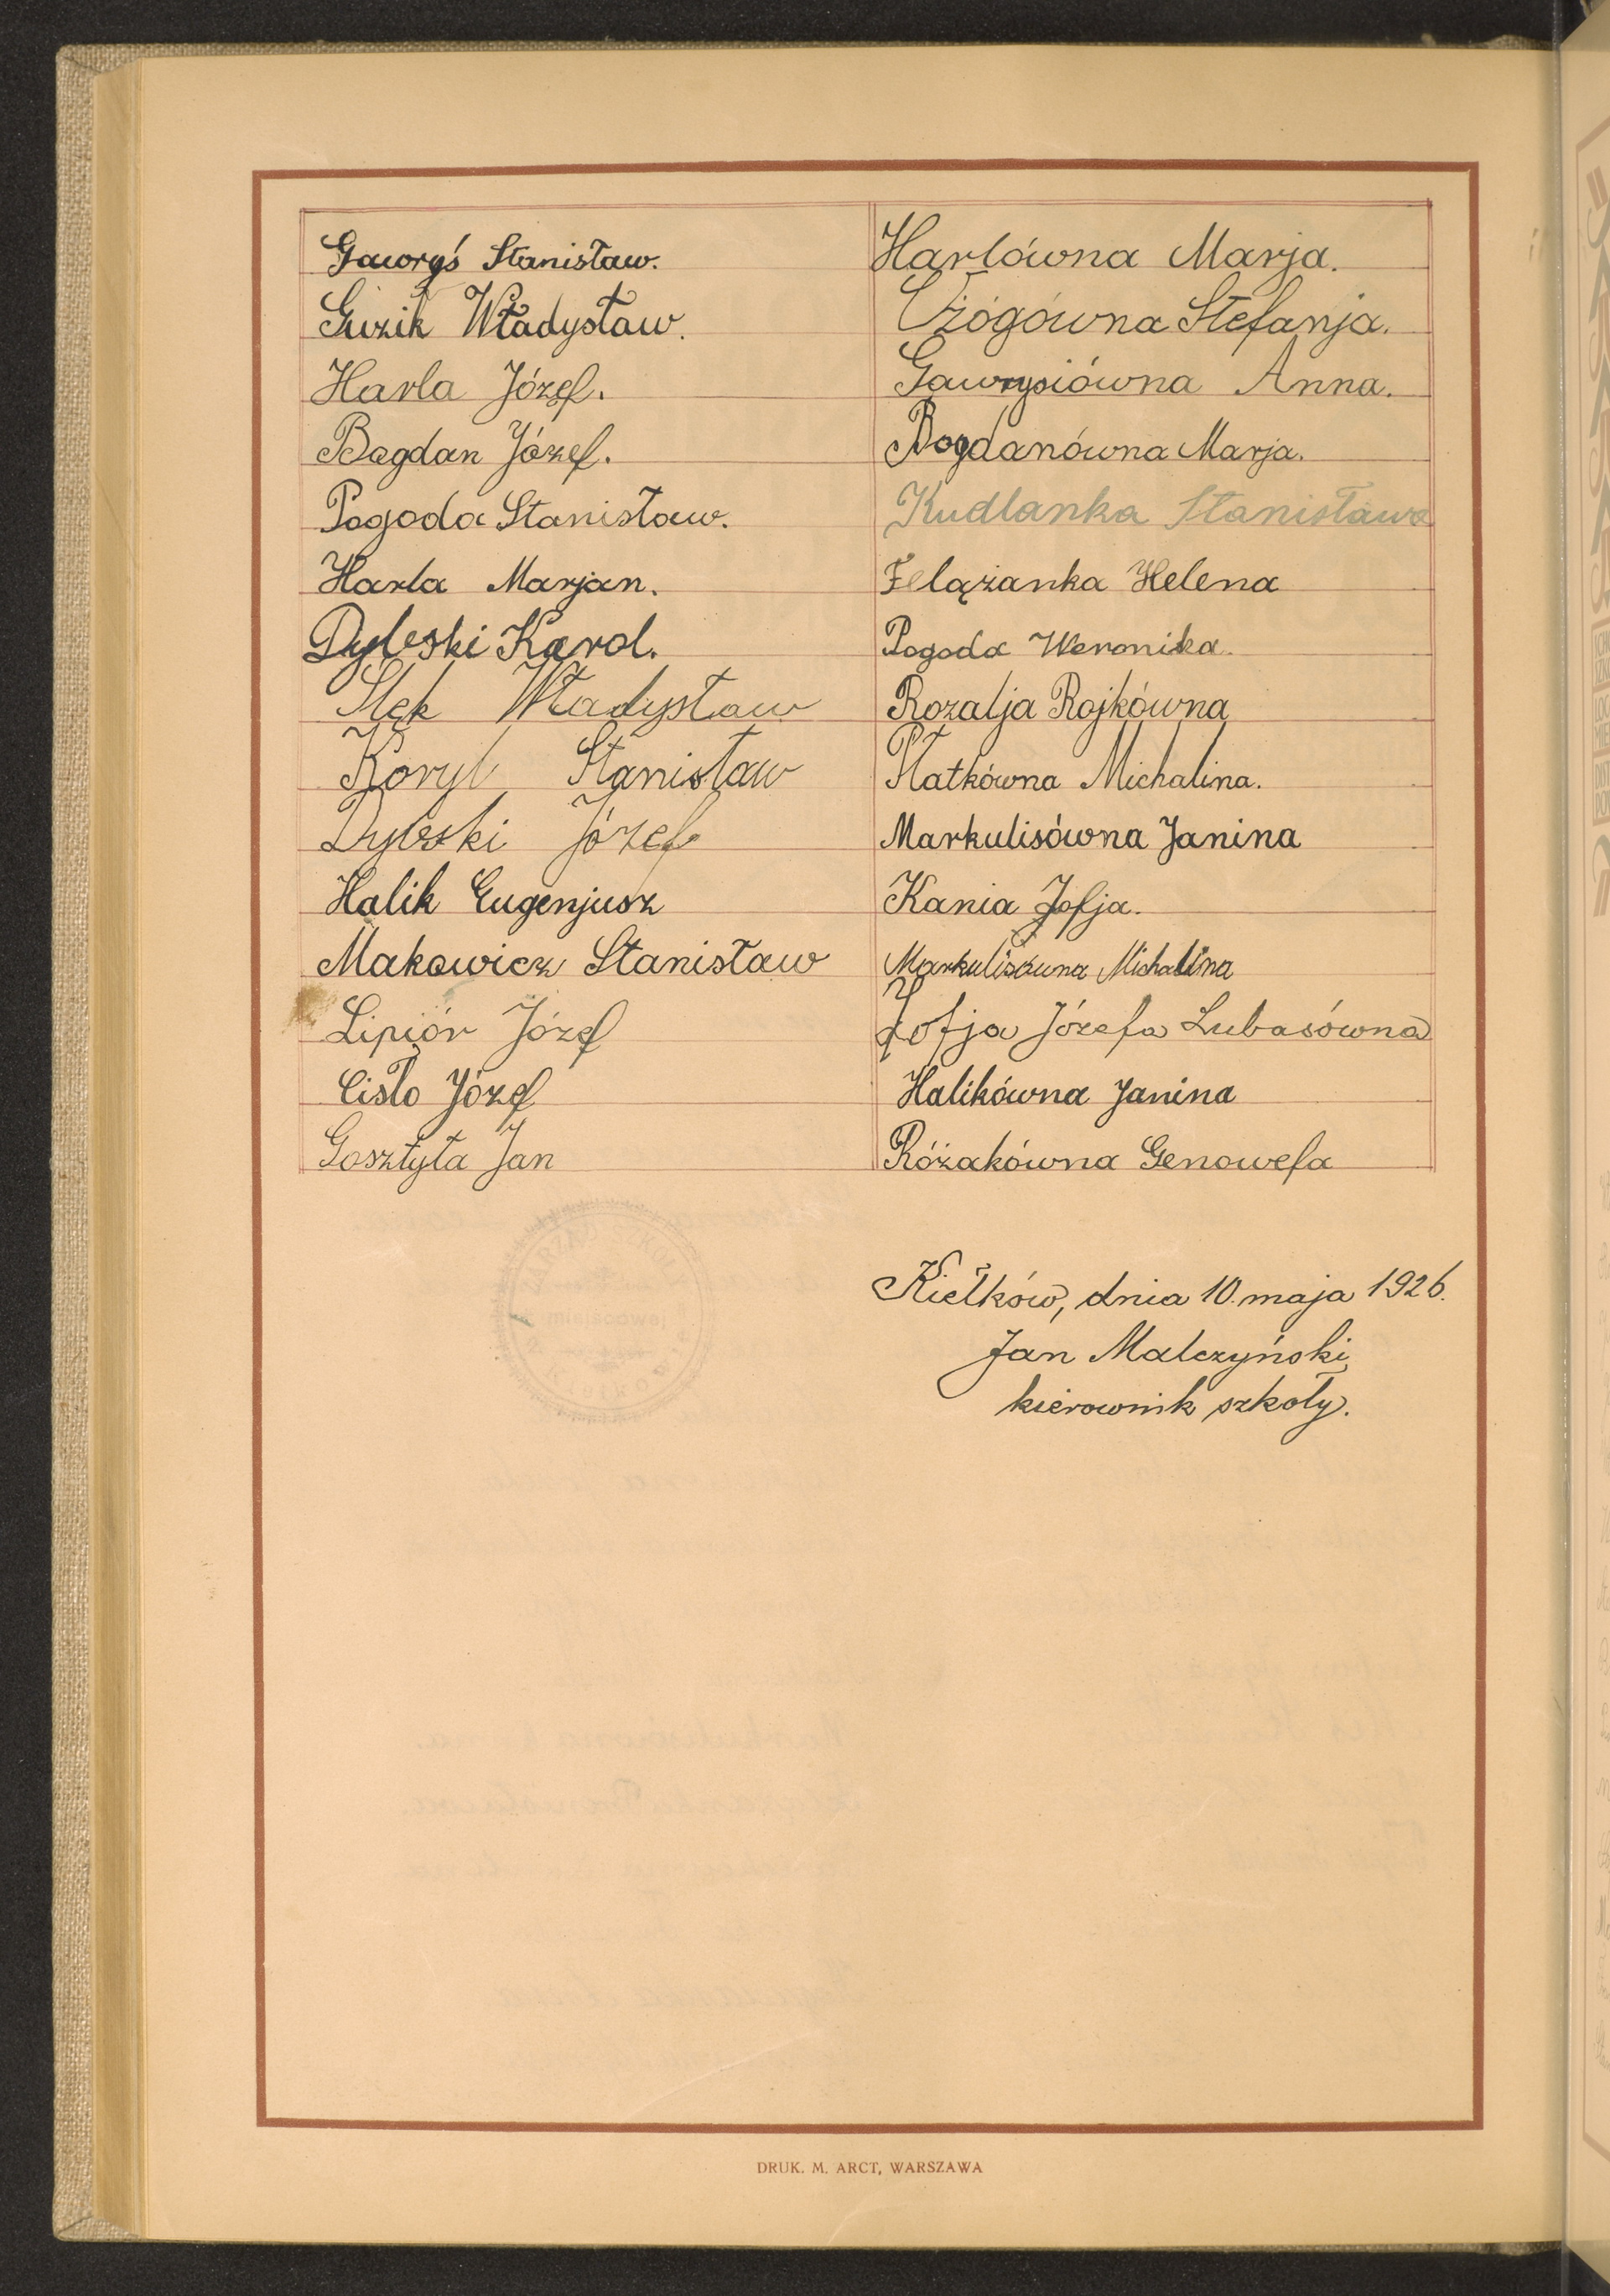 Gaworyś Stanisław.
Guzik Władysław.
Harla Józef.
Bogdan Józef.
Pogoda Stanisław.
Harla Marjan.
Dybski Karol.
Stęk Władysław
Koryl Stanisław
Dybski Józef
Halik Eugenjusz
Makowicz Stanisław
Lipiór Józef
Cisło Józef
Gosztyła Jan
Harlówna Marja.
Ożogówna Stefanja.
Gawrysiówna Anna.
Bogdanówna Marja.
Kudlanka Stanisława
Felążanka Helena
Pogoda Weronika.
Rozalja Rojkówna
Płatkówna Michalina.
Markulisówna Janina
Kania Zofja.
Markulisówna Michalina
Zofja Józefa Lubasówna
Halikówna Janina
Różakówna Genowefa
Kiełków, dnia 10. maja 1926.
Jan Malczyński
kierownik szkoły.
DRUK. M. ARCT, WARSZAWA